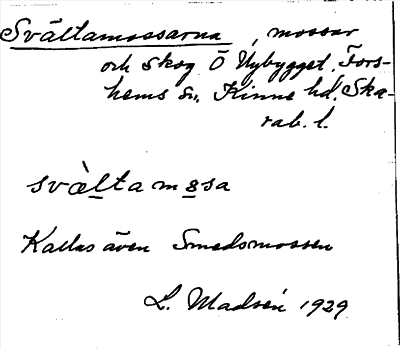 Svältamossarna, mossar
och skog Ö Nybygget. Fors-
hems sn, Kinne hd, Ska-
rab. l.
svàltamosa
Kallas även Smedsmossen
L. Madsén 1929